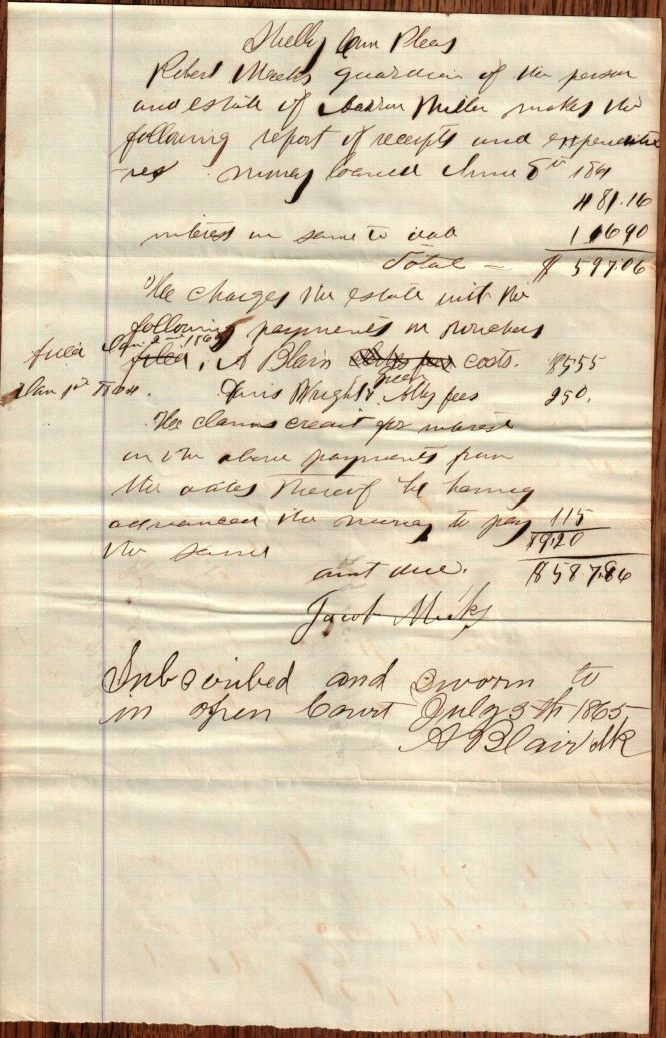 Shelby Com Pleas
Robert Meeks guardian of the person
and estate of Miller makes the
following report of receipts and expenditu
res money loaned June 8th 1861
481.16
interest on same to date 116 90
Total - $ 597.06
He charges the estate with the
following payments on vouchers
Jan 2nd 1865
filed filed, A Blair costs. 8555
Jan 1st 1864. Davis Wright & Green Atty fees 250.
He claims credit for interest
on the above payments from
the dates thereof he having
advanced the money to pay 115
the same $9.20
amt due. $587.86
Jacob Meeks
Subscribed and sworn to
in open Court July 5th 1865
A Blair Clk